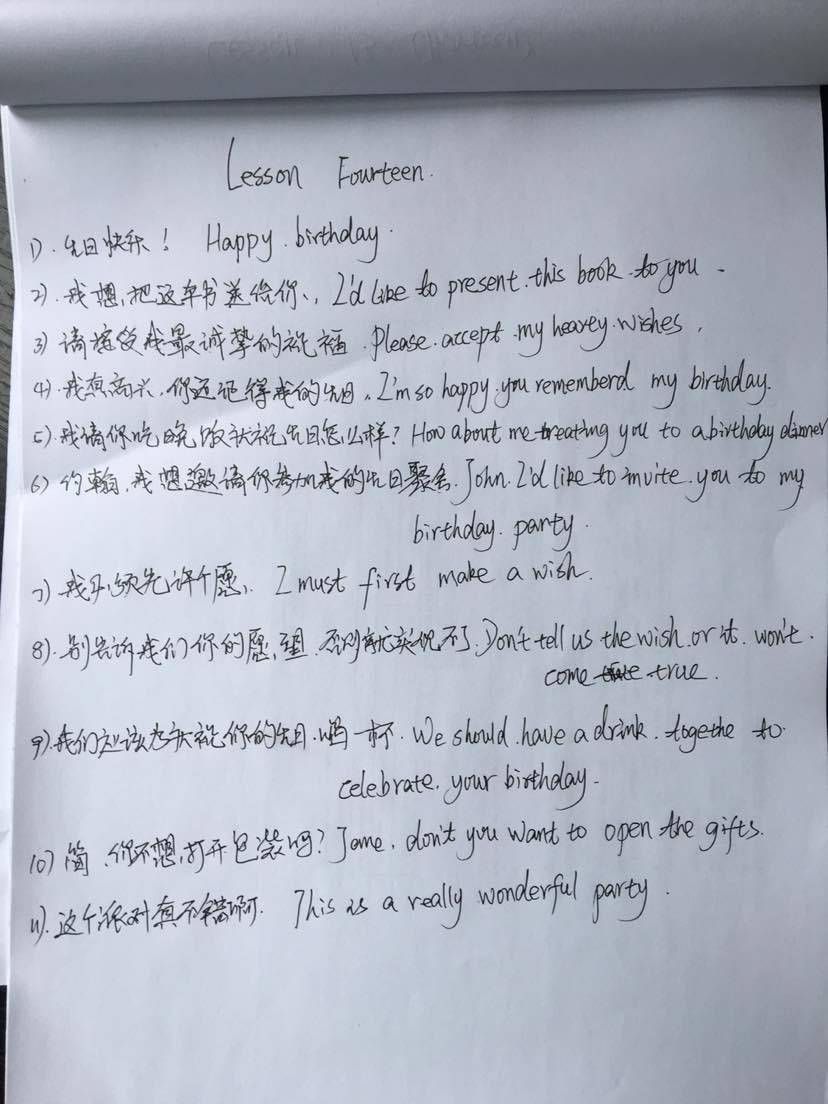 Lesson Fourteen.
1). 生日快乐! Happy birthday.
2). 我想把这本书送给你. I'd like to present this book to you.
3) 请接受我最诚挚的祝福. Please accept my heavey wishes.
4). 我很高兴,你还记得我的生日. I'm so happy you rememberd my birthday.
5). 我请你吃晚饭庆祝生日怎么样? How about me treating you to a birthday dinner
6) 约翰,我想邀请你参加我的生日聚会. John. I'd like to invite you to my
birthday party.
7) 我必须先许个愿. I must first make a wish.
8). 别告诉我们你的愿望,否则就实现不了. Don't tell us the wish or it won't
come true.
9) 我们应该为庆祝你的生日喝一杯. We should have a drink togethe to
celebrate your birthday.
10) 简,你不想打开包装吗? Jane, don't you want to open the gifts.
11). 这个派对真不错啊. This is a really wonderful party.